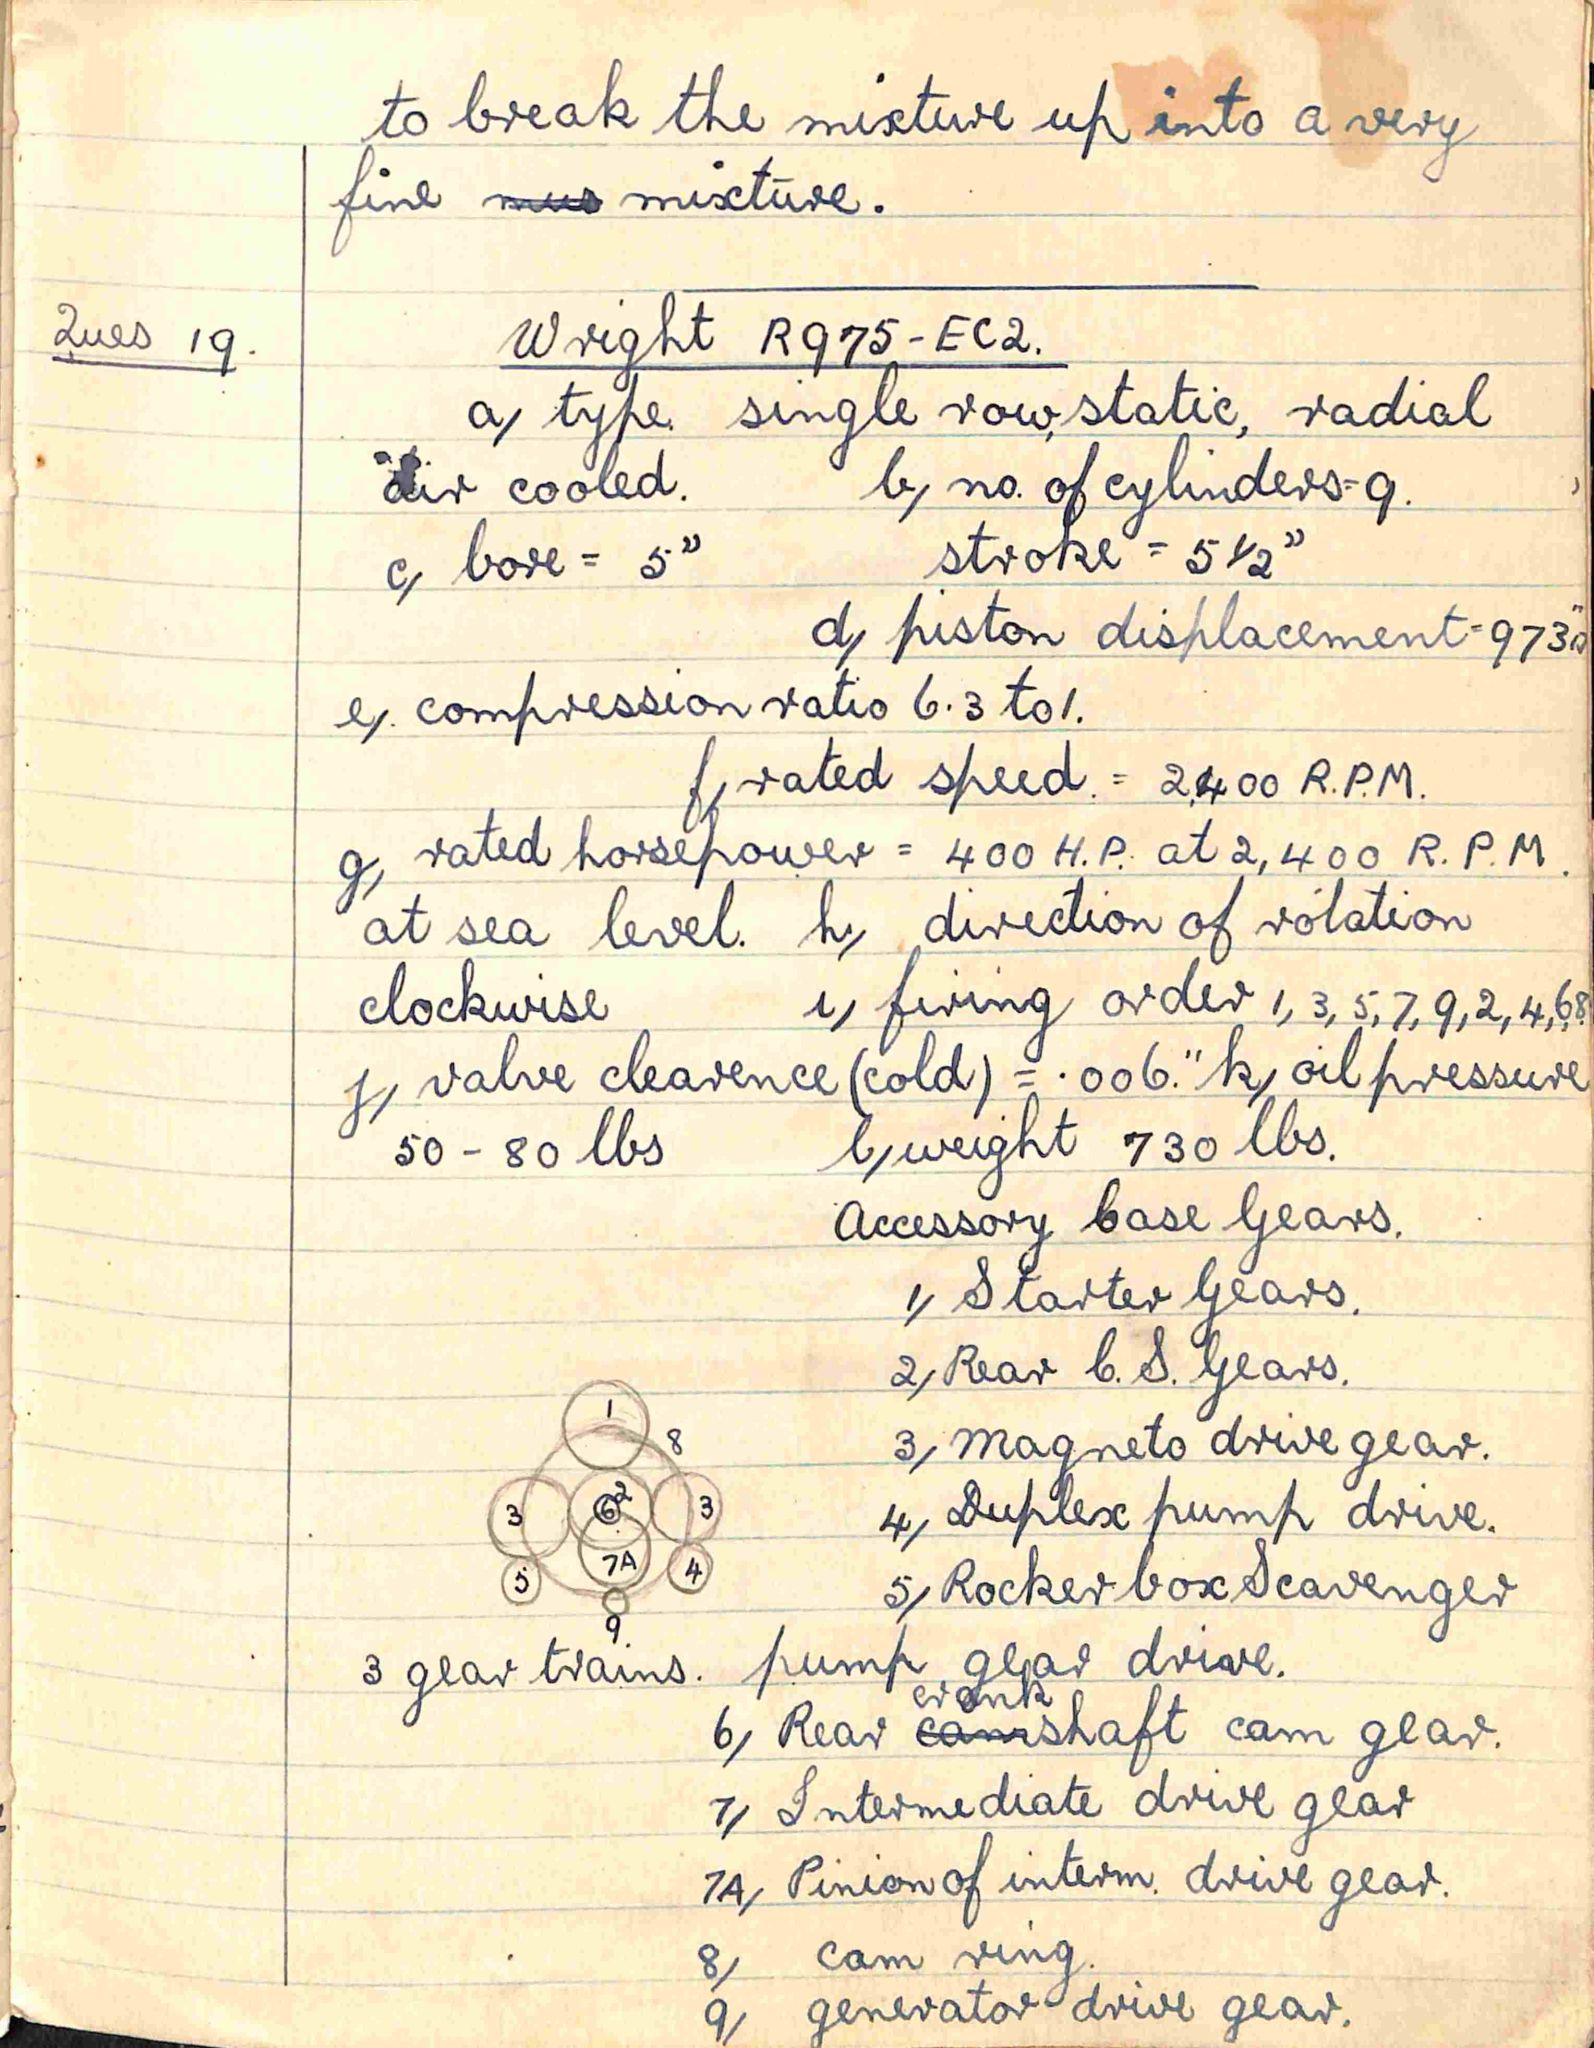 to break the mixture up into a very
fine mixture.
Ques 19.
Wright R975-EC2.
a, type. single row, static, radial
air cooled. b, no. of cylinders=9.
c, bore = 5" stroke = 5 1/2"
d, piston displacement = 973
e, compression ratio 6.3 to 1.
f, rated speed. = 2,400 R.P.M.
g, rated horsepower = 400 H.P. at 2,400 R.P.M.
at sea level. h, direction of rotation
clockwise i, firing order 1, 3, 5, 7, 9, 2, 4, 6, 8.
j, valve clearence (cold) = .006." k, oil pressure
50 - 80 lbs l, weight 730 lbs.
Accessory base Gears.
1, Starter Gears.
2, Rear C.S. Gears.
3, Magneto drive gear.
4, Duplex pump drive.
5, Rocker box Scavenger
pump gear drive.
1
8
3 6 2 3
5 7A 4
9
3 gear trains.
6, Rear camshaft crank cam gear.
7, Intermediate drive gear
7A, Pinion of interm. drive gear.
8, cam ring.
9, generator drive gear.